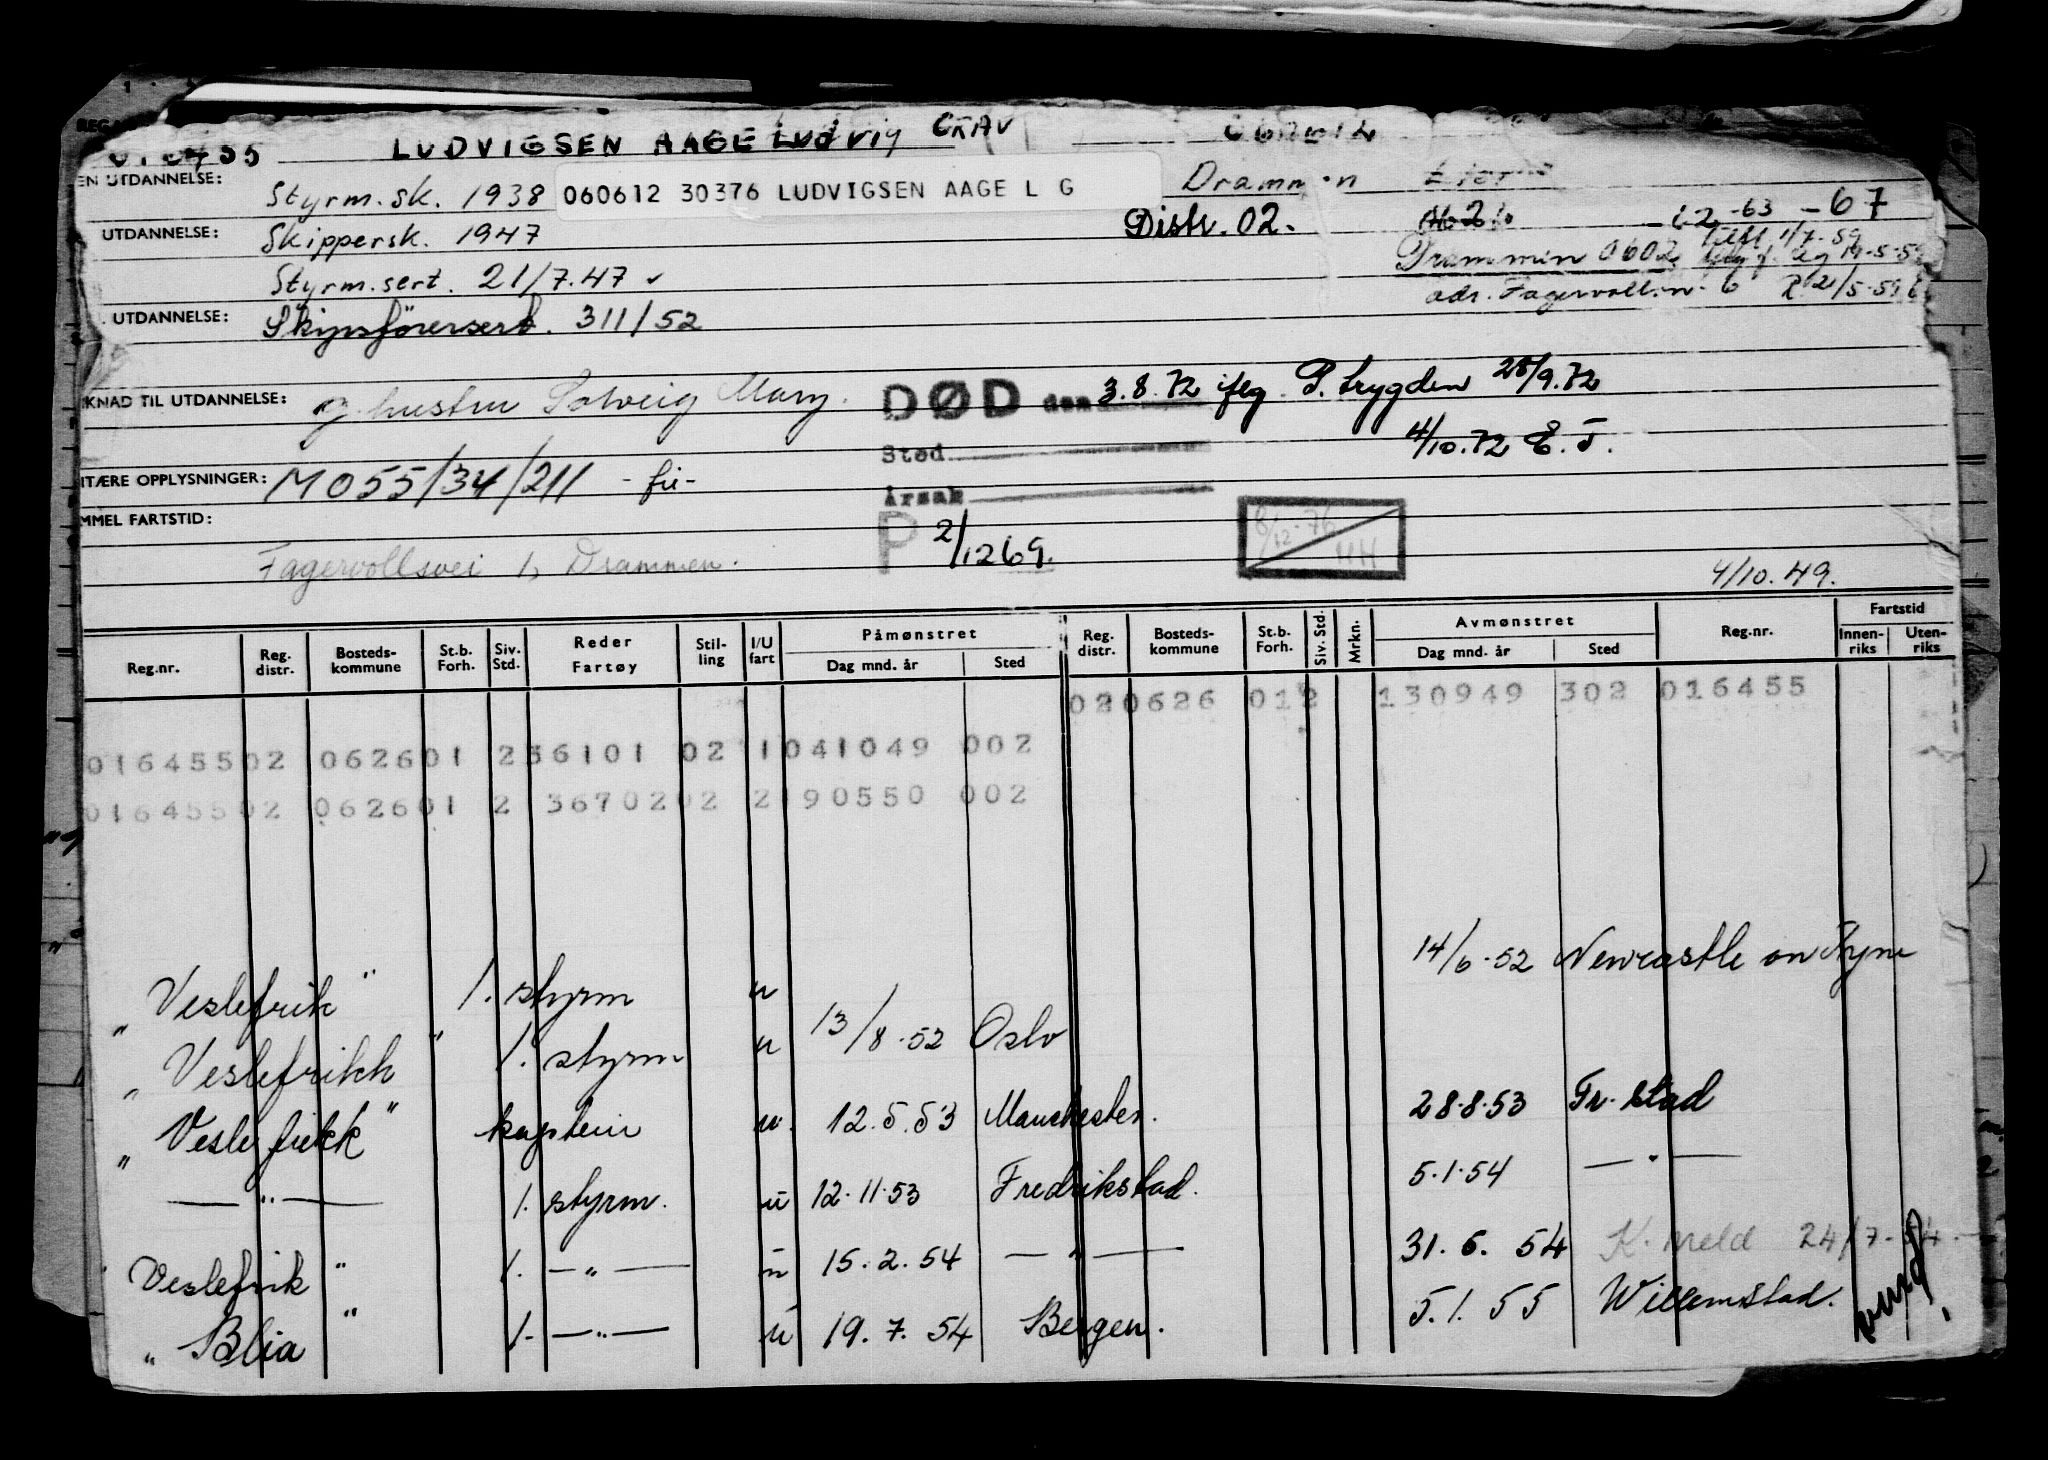 LUDVIGSEN AAGE Ludvig GRAV
EN UTDANNELSE: Styrm.sk. 1938
060612 30376 LUDVIGSEN AAGE L G
Drammen
Distr. 02.
-63 -67
UTDANNELSE: Skippersk. 1947
Drammen 0602
Styrm.sert. 21/7.47
UTDANNELSE: Skipsførersert. 311/52
KNAD TIL UTDANNELSE: g. hustru Solveig Mary.
DØD den 3.8.72 iflg. P. trygden 28/9.72
4/10.72 E.T.
Sted
Årsak
ITÆRE OPPLYSNINGER: M055/34/211
MMEL FARTSTID:
P 2/1269.
8/12-76 HH
Fagervollsvei 1, Drammen.
4/10.49.
Reg.nr. Reg. distr. Bosteds-kommune St.b. Forh. Siv. Std. Reder Fartøy Stil-ling I/U fart Påmønstret Dag mnd. år Sted Reg. distr. Bosteds-kommune St.b. Forh. Siv. Std. Mrkn. Avmønstret Dag mnd. år Sted Reg.nr. Fartstid Innen-riks Uten-riks
020626 012 130949 302 016455
01645502 062601 236101 02 1041049 002
01645502 062601 2 3670202 2190550 002
14/6.52 Newcastle on Tyne
"Veslefrik" 1. styrm u 13/8.52 Oslo
"Veslefrikk" 1. styrm u
28.8.53 Fr.stad
"Veslefrikk" kaptein u. 12.5.53 Manchester.
5.1.54 — " —
— " — 1. styrm. u 12.11.53 Fredrikstad.
31.6.54 K. meld 24/7.54
"Veslefrik" 1. — " — u 15.2.54 — " —
5.1.55 Willemstad.
"Blia" 1. — " — u 19.7.54 Bergen.
vend